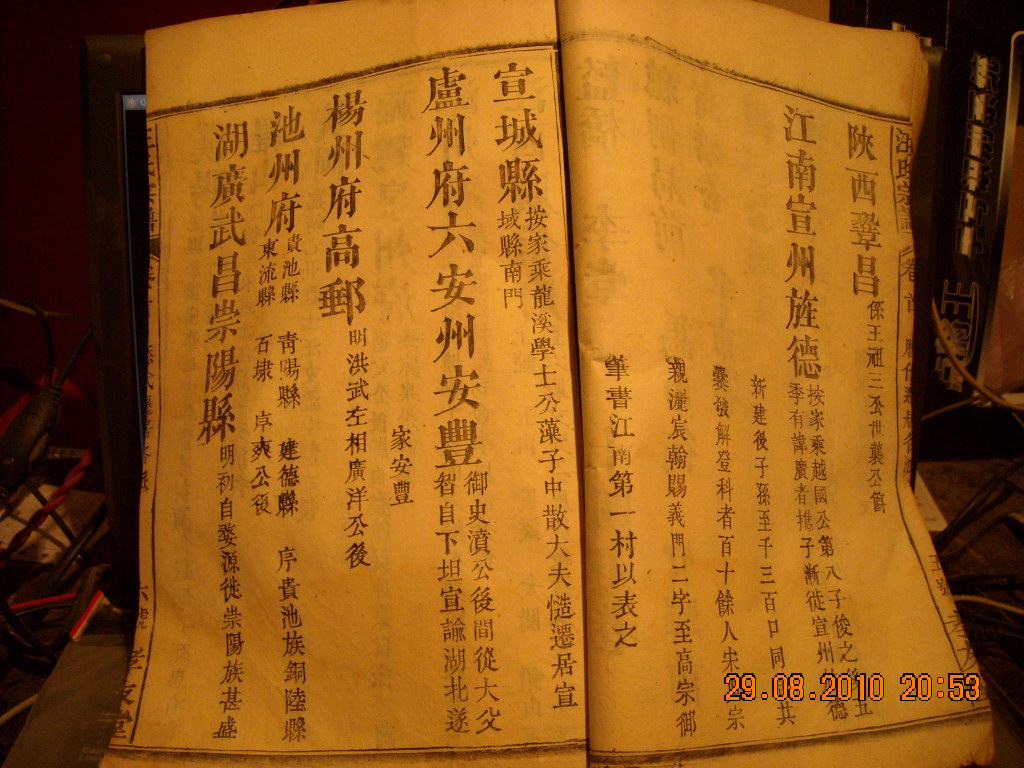 陝西鞏昌 係王祖三公世襲公爵
江南宣州旌德 按家乘越國公第八子俊之
季有諱廣者攜子漸徙宣州旌德
新建後子孫至千三百口同
爨敏解登科者百十餘人宋
親灑宸翰賜義門二字至高宗御
筆書江南第一村以表之
宣城縣 按家乘龍溪學士公藻子中散大夫慥遷居宣
域縣南門
盧州府六安州安豐 御史濆公後間從大父
智自下坦宣諭湖北遂
家安豐
楊州府高郵 明洪武左相廣洋公後
池州府 貴池縣 青陽縣 建德縣 序貴池族銅陸縣
東流縣 石埭 卓爽公後
湖廣武昌崇陽縣 明初自婺源徙崇陽族甚盛
29.08.2010 20:53